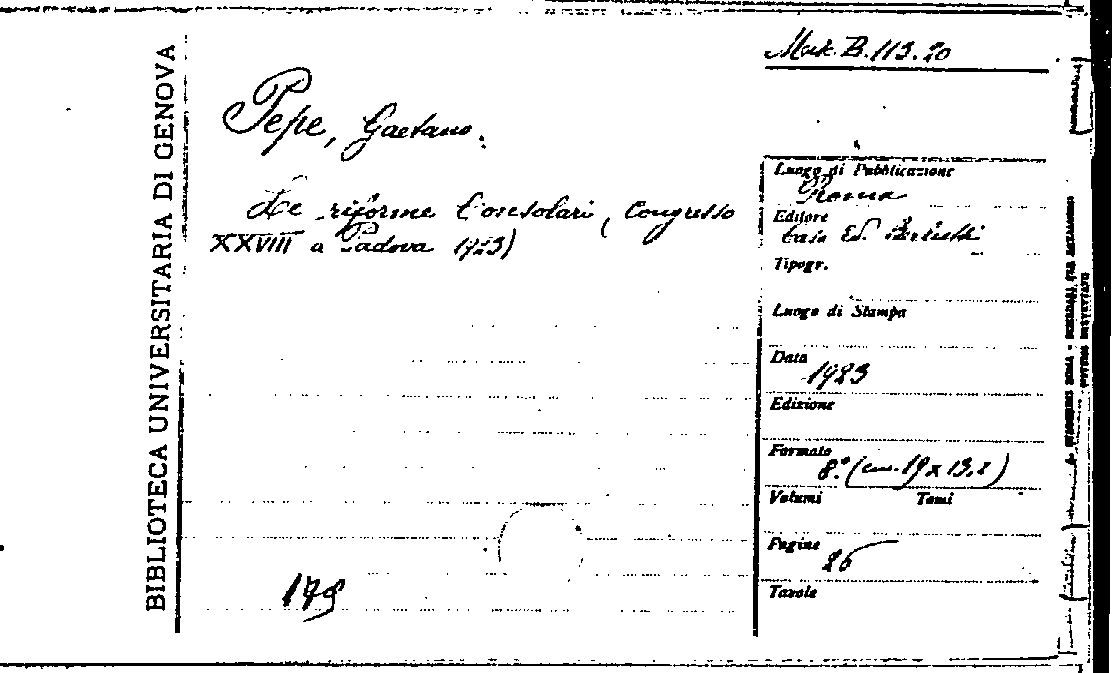 BIBLIOTECA UNIVERSITARIA DI GENOVA
B.113.20
Pepe, Gaetano.
Le riforme Consolari, (Congresso
XXVIII a Padova 1923)
Luogo di Pubblicazione
Roma
Editore
Casa Ed.
Tipogr.
Luogo di Stampa
Data
1923
Edizione
Formato
8.° (cm. 19 x 13,2)
Volumi Tomi
Pagine
26
Tavole
179